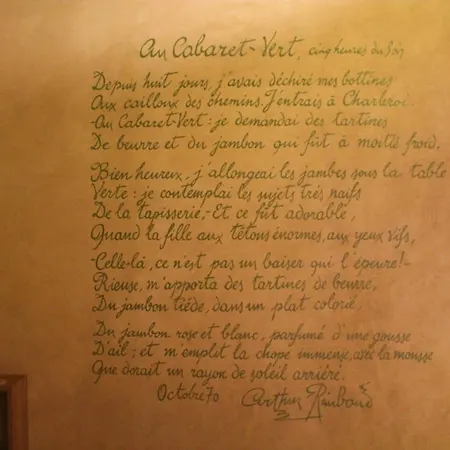 Au Cabaret-Vert, cinq heures du soir
Depuis huit jours, j'avais déchiré mes bottines
Aux cailloux des chemins. J'entrais à Charleroi.
-Au Cabaret-Vert: je demandai des tartines
De beurre et du jambon qui fût à moitié froid.
Bien heureux, j'allongeai les jambes sous la table
Verte: je contemplai les sujets très naïfs
De la tapisserie,-Et ce fut adorable,
Quand la fille aux tétons énormes, aux yeux vifs,
-Celle-là, ce n'est pas un baiser qui l'épeure!-
Rieuse, m'apporta des tartines de beurre,
Du jambon tiède, dans un plat colorié,
Du jambon rose et blanc, parfumé d'une gousse
D'ail; et m'emplit la chope immense, avec la mousse
Que dorait un rayon de soleil arriéré.
Octobre 70 Arthur Rimbaud